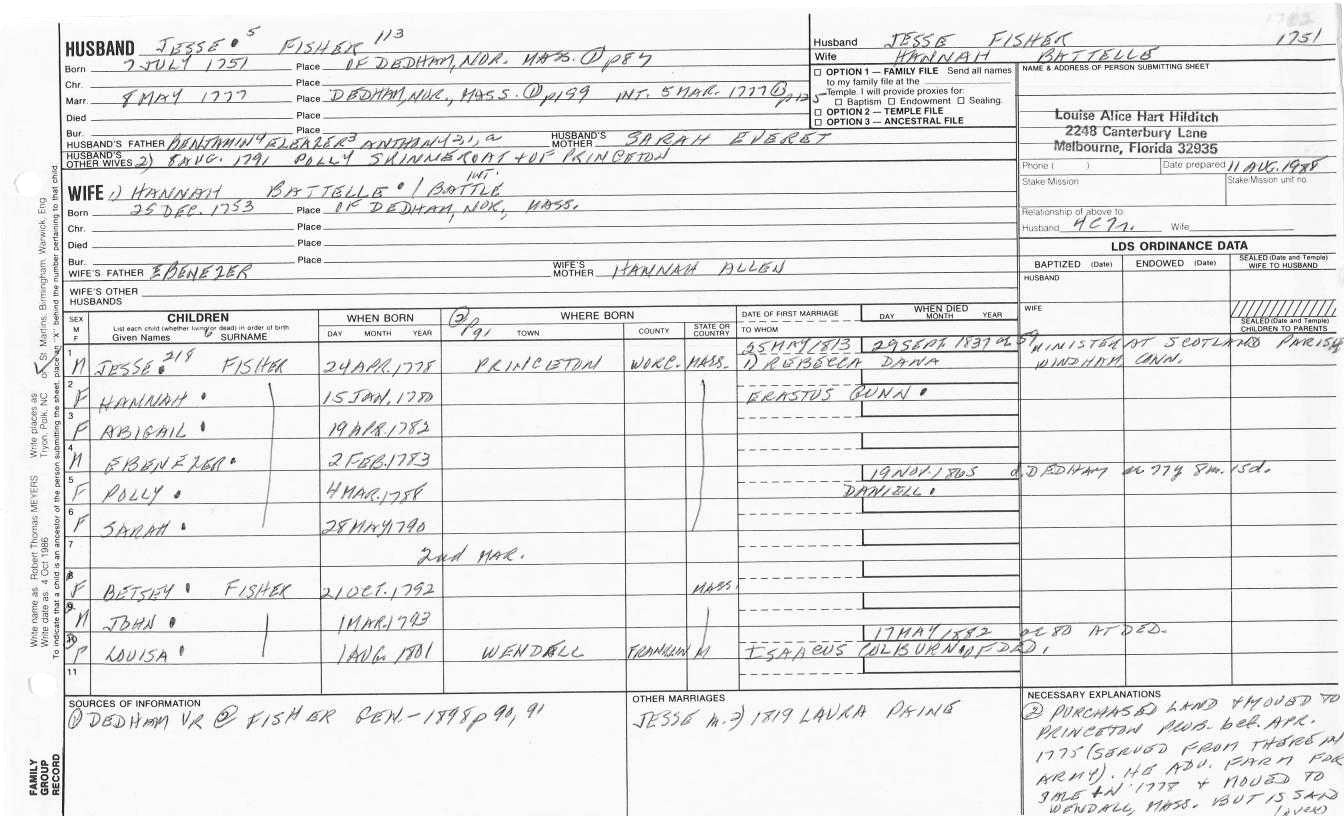 1782
HUSBAND JESSE 5 FISHER 113
Born 7 JULY 1751 Place OF DEDHAM, NOR. MASS. ① p87
Chr. Place
Marr. 8 MAY 1777 Place DEDHAM, NOR., MASS. ① p199 INT. 5 MAR. 1777 ① p125
Died Place
Bur. Place
HUSBAND'S FATHER BENJAMIN4 ELEAZER3 ANTHANY21, a HUSBAND'S MOTHER SARAH EVERET
HUSBAND'S OTHER WIVES 2) 8 AUG. 1791 POLLY SKINNER OF PRINCETON
WIFE 1) HANNAH BATTELLE / BATTLE INT.
Born 25 DEC. 1753 Place OF DEDHAM, NOR., MASS.
Chr. Place
Died Place
Bur. Place
WIFE'S FATHER EBENEZER WIFE'S MOTHER HANNAH ALLEN
WIFE'S OTHER HUSBANDS
Husband JESSE FISHER 1751
Wife HANNAH BATTELLE
☐ OPTION 1 — FAMILY FILE Send all names
to my family file at the
Temple. I will provide proxies for:
☐ Baptism ☐ Endowment ☐ Sealing.
☐ OPTION 2 — TEMPLE FILE
☐ OPTION 3 — ANCESTRAL FILE
NAME & ADDRESS OF PERSON SUBMITTING SHEET
Louise Alice Hart Hilditch
2248 Canterbury Lane
Melbourne, Florida 32935
Phone ( ) Date prepared 11 AUG. 1988
Stake Mission Stake Mission unit no.
Relationship of above to:
Husband 4C7r. Wife
LDS ORDINANCE DATA
BAPTIZED (Date) ENDOWED (Date) SEALED (Date and Temple) WIFE TO HUSBAND
HUSBAND
WIFE
SEALED (Date and Temple) CHILDREN TO PARENTS
SEX M F CHILDREN List each child (whether living or dead) in order of birth Given Names SURNAME
WHEN BORN DAY MONTH YEAR
② p 91 WHERE BORN TOWN COUNTY STATE OR COUNTRY
DATE OF FIRST MARRIAGE TO WHOM
WHEN DIED DAY MONTH YEAR
1 M JESSE 218 FISHER 24 APR. 1778 PRINCETON WORC. MASS. 25 MAY 1813 1) REBECCA DANA 29 SEPT 1837 a 59 MINISTER AT SCOTLAND PARISH
WINDHAM, CONN.
2 F HANNAH 15 JAN. 1780 ERASTUS GUNN
3 F ABIGAIL 19 APR. 1782
4 M EBENEZER 2 FEB. 1783
5 F POLLY 4 MAR. 1788 DANIELL 19 NOV. 1865 d. DEDHAM ae 77y 8m. 15d.
6 F SARAH 28 MAY 1790
7 2nd MAR.
8 F BETSEY FISHER 21 OCT. 1792 MASS.
9 M JOHN 1 MAR. 1793
10 F LOUISA 1 AUG. 1801 WENDELL FRANKLIN M ISAACUS COLBURN OF DED. 17 MAY 1882 ae 80 AT DED.
11
SOURCES OF INFORMATION
① DEDHAM VR ② FISHER GEN. - 1898 p 90, 91
OTHER MARRIAGES
JESSE m. 2) 1819 LAURA PAINE
NECESSARY EXPLANATIONS
② PURCHASED LAND & MOVED TO
PRINCETON PROB. bef. APR.
1775 (SERVED FROM THERE IN
ARMY). HE ADV. FARM FOR
SALE IN 1778 & MOVED TO
WENDALL, MASS. BUT IS SAID
(OVER)
Write name as Robert Thomas MEYERS Write places as Tryon, Polk, NC or St. Martins, Birmingham, Warwick, Eng
Write date as 4 Oct 1986
To indicate that a child is an ancestor of the person submitting the sheet, place an "X" behind the number pertaining to that child.
FAMILY
GROUP
RECORD